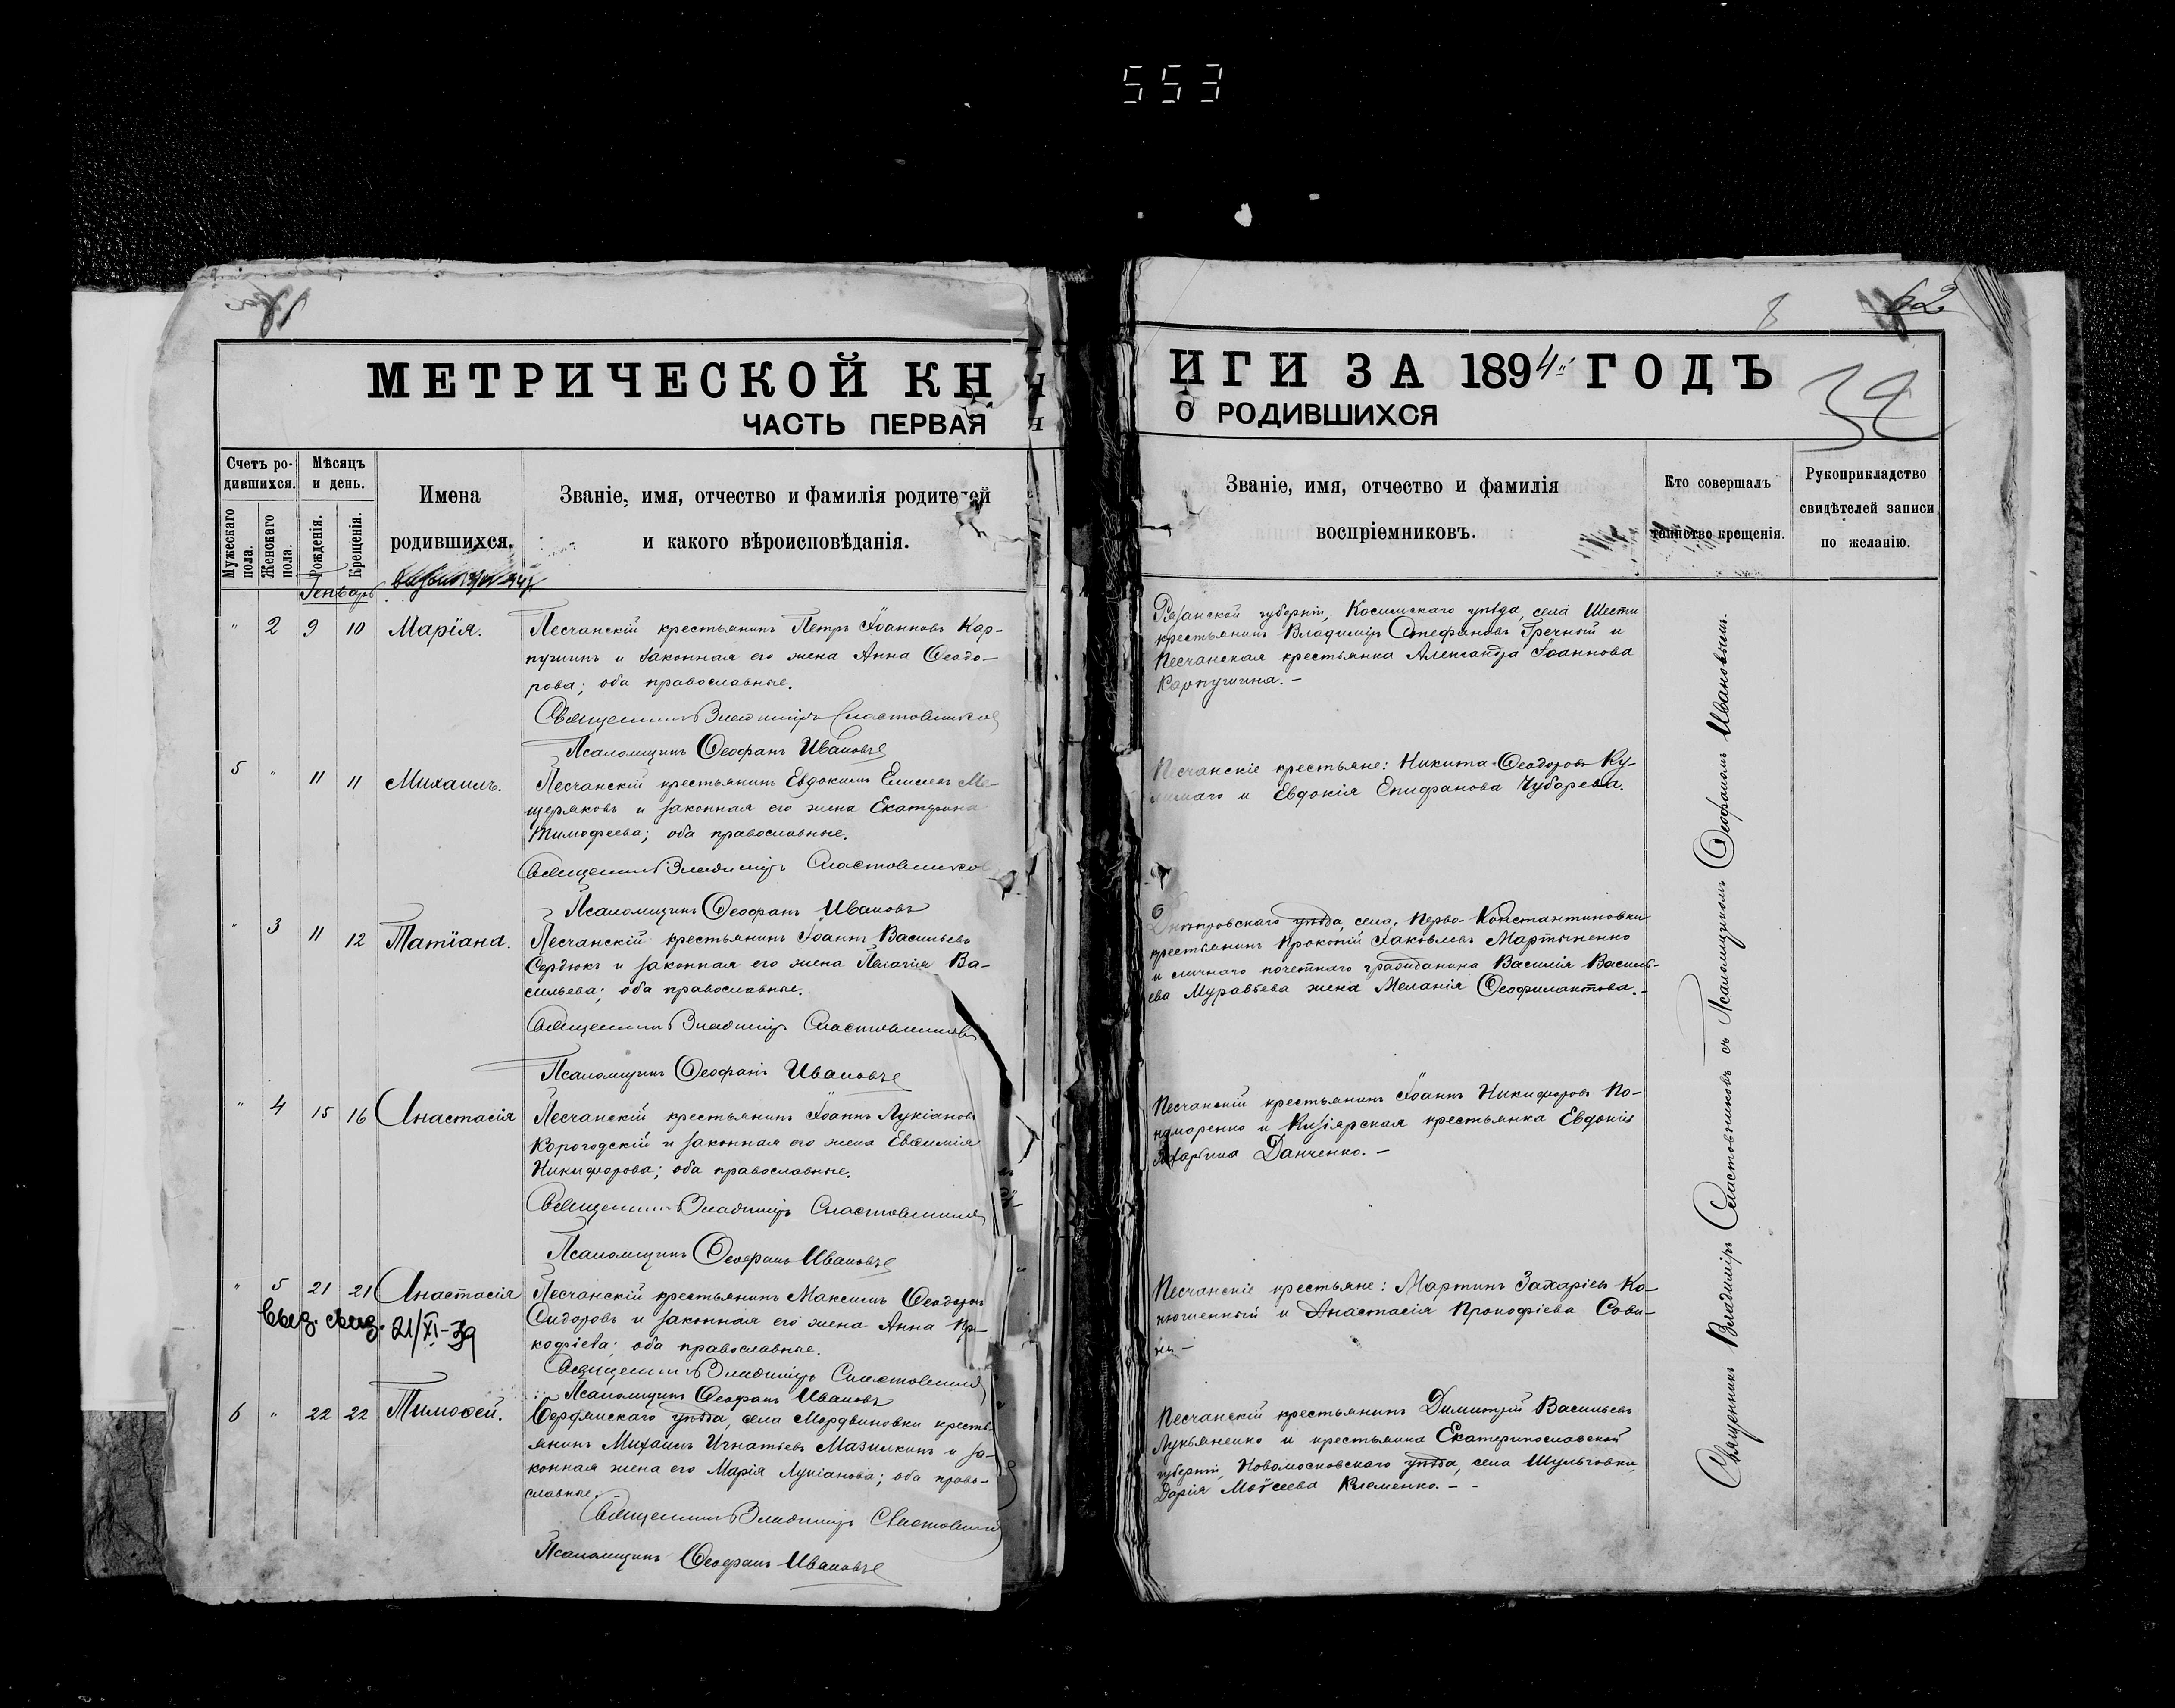 553
8
62
МЕТРИЧЕСКОЙ КН
ИГИ ЗА 1894 ГОДЪ
ЧАСТЬ ПЕРВАЯ
О РОДИВШИХСЯ
Счетъ ро-
дившихся.
Мужескаго пола.
Женскаго пола.
Мѣсяцъ
и день.
Рожденія.
Крещенія.
Имена
родившихся.
Званіе, имя, отчество и фамилія родителей
и какого вѣроисповѣданія.
Званіе, имя, отчество и фамилія
воспріемниковъ.
Кто совершалъ
таинство крещенія.
Рукоприкладство
свидѣтелей записи
по желанію.
Генварь
" 2 9 10 Марія.
Песчанскій крестьянинъ Петръ Іоанновъ Кар-
пушинъ и законная его жена Анна Ѳеодо-
рова; оба православные.
Священникъ Владиміръ Сластовников
Псаломщикъ Ѳеофанъ Ивановъ
Рязанской губерніи, Косимскаго уѣзда, села Шести
крестьянинъ Владиміръ Стефановъ Гречный и
Песчанская крестьянка Александра Іоаннова
Карпушина. –
5 " 11 11 Михаилъ.
Песчанскій крестьянинъ Евдокимъ Елисеев Ме-
щеряковъ и законная его жена Екатерина
Тимофеева; оба православные.
Священникъ Владиміръ Сластовников
Псаломщикъ Ѳеофанъ Ивановъ
Песчанскіе крестьяне: Никита Ѳеодоровъ Ку-
и Евдокія Епифанова Чубарева.
" 3 11 12 Татіана.
Песчанскій крестьянинъ Іоаннъ Васильевъ
Сердюкъ и законная его жена Пелагія Ва-
сильева; оба православные.
Священникъ Владиміръ Сластовников
Псаломщикъ Ѳеофанъ Ивановъ
Днѣпровскаго уѣзда, села, Перво-Константиновки
крестьянинъ Прокопій Іаковлевъ Мартыненко
и личнаго почетнаго гражданина Василія Василь-
ева Муравьева жена Меланія Ѳеофилактова. –
" 4 15 16 Анастасія
Песчанскій крестьянинъ Іоаннъ Лукіановъ
Корогодскій и законная его жена Евѳимія
Никифорова; оба православные.
Священникъ Владиміръ Сластовников
Псаломщикъ Ѳеофанъ Ивановъ
Песчанскій крестьянинъ Іоаннъ Никифоровъ По-
номоренко и Кизіярская крестьянка Евдокія
Данченко. –
" 5 21 21 Анастасія
21/XI-39
Песчанскій крестьянинъ Максимъ Ѳеодоровъ
Сидоровъ и законная его жена Анна Про-
кофіева; оба православные.
Священникъ Владиміръ Сластовников
Псаломщикъ Ѳеофанъ Ивановъ
Песчанскіе крестьяне: Мартинъ Захаріевъ Ко-
нюшенный и Анастасія Прокофіева Сови-
6 " 22 22 Тимоѳей.
Бердянскаго уѣзда, села Мордвиновки кресть-
янинъ Михаилъ Игнатьевъ Мазилкинъ и за-
конная жена его Марія Лукіанова; оба право-
славные.
Священникъ Владиміръ Сластовников
Псаломщикъ Ѳеофанъ Ивановъ
Песчанскій крестьянинъ Димитрій Васильевъ
Лукьяненко и крестьянка Екатеринославской
губерніи, Новомосковскаго уѣзда, села Шульговки,
Дарія Моѵсеева Клеменко. – –
Священникъ Владиміръ Сластовниковъ съ Псаломщикомъ Ѳеофаномъ Ивановичемъ.